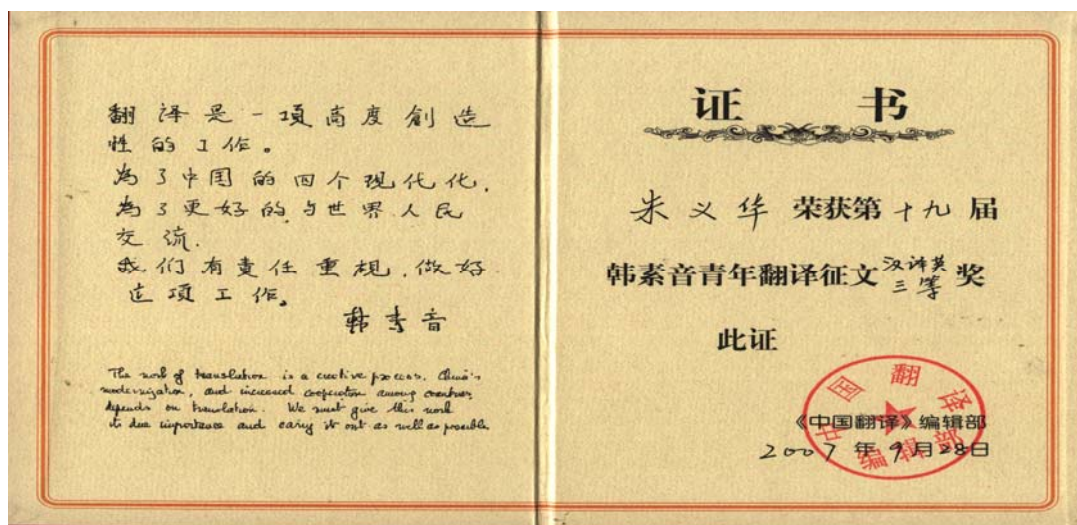 翻译是一項高度創造
性的工作。
為了中国的四个现代化,
為了更好的与世界人民
交流.
我们有責任重視,做好
这項工作。
韩素音
The work of translation is a creative process. China's
modernization, and increased cooperation among countries,
depends on translation. We must give this work
its due importance and carry it out as well as possible
证 书
朱义华 荣获第十九届
韩素音青年翻译征文汉译英三等奖
此证
《中国翻译》编辑部
2007年9月28日
中国翻译
编辑部